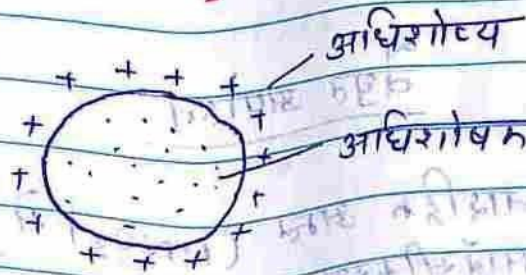 अधिशोष्य
अधिशोषक